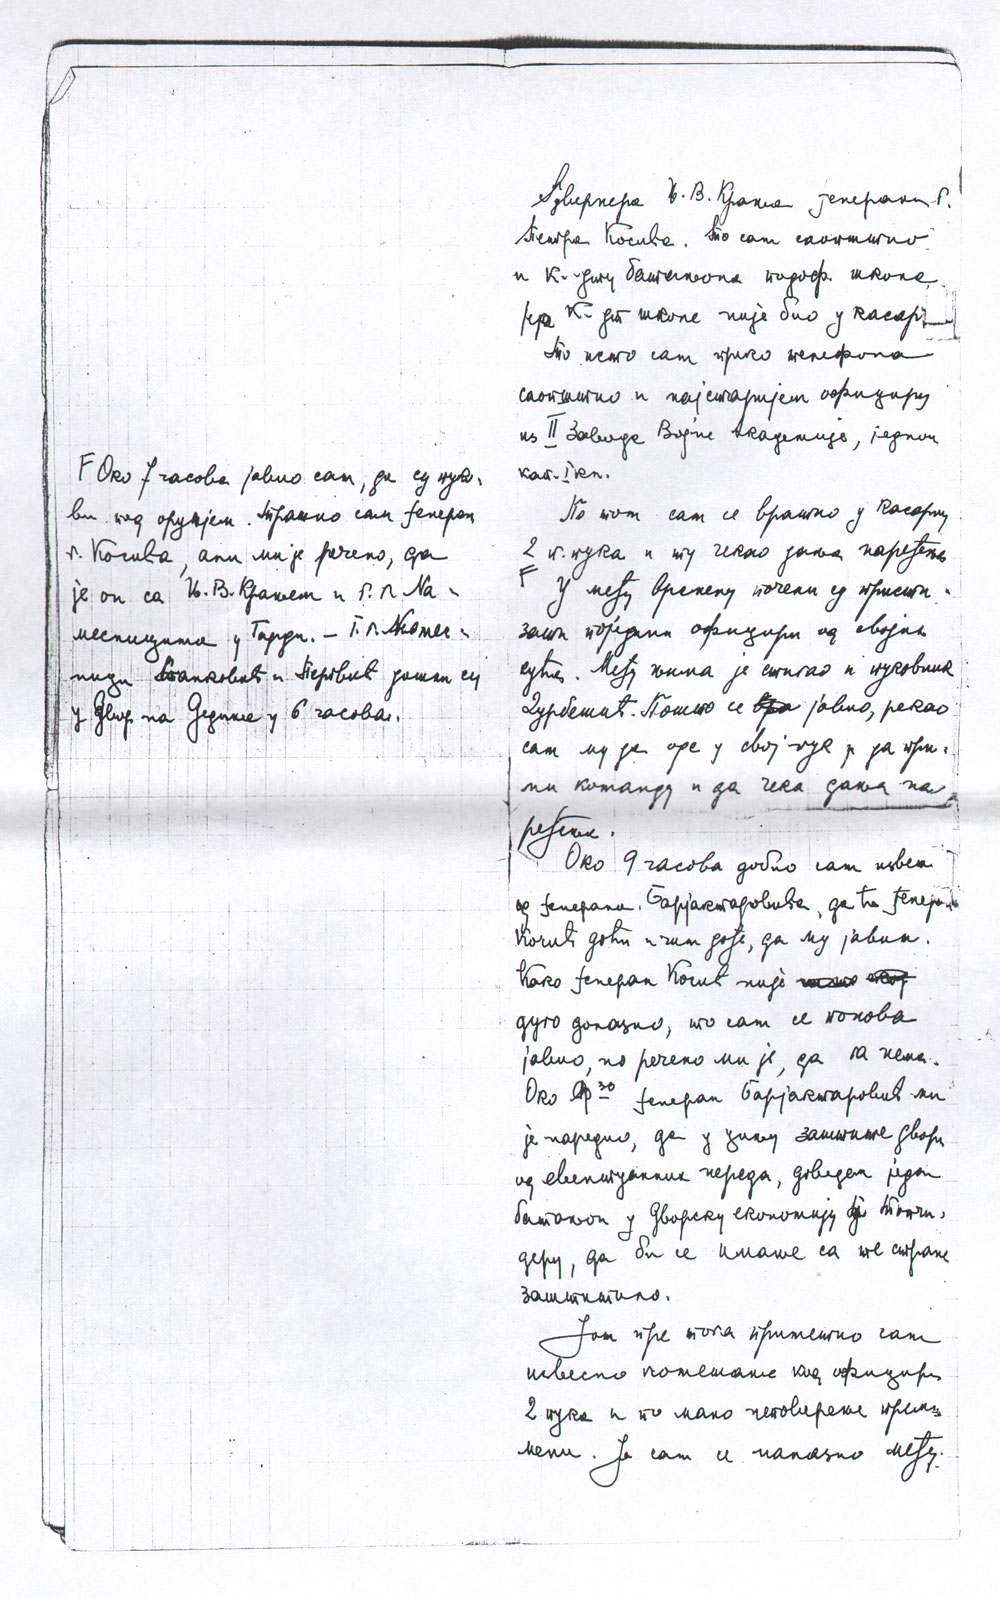 Гувернера Њ. В. Краља ђенерала г.
Петра Косића. То сам саопштио
и К-дту батаљона подоф. школе
јер К-дт школе није био у касарн
То исто сам преко телефона
саопштио и најстаријем официру
из II Завода Војне Академије, једном
кап. I кл.
По том сам се вратио у касарну
2 п. пука и ту чекао даља наређења
F
У међу времену почели су присти-
зати поједини официри од својих
кућа. Међу њима је стигао и пуковник
Дурбешић. Пошто се јавио, рекао
сам му да оде у свој пук и да при-
ми команду и да чека даља на
ређења.
Око 9 часова добио сам извеш
од ђенерала Барјактаровића, да ће ђенерал
Косић доћи и чим дође, да му јавим.
Како ђенерал Косић није
дуго долазио, то сам се понова
јавио, но речено ми је, да га нема.
Око 30 ђенерал Барјактаровић ми
је наредио, да у циљу заштите двора
од евентуалних нереда, доведем један
батаљон у Дворску економију у Топчи-
деру, да би се имање са те стране
заштитило.
Још пре тога приметио сам
извесно комешање код официра
2 пука и то мало неповерење према
мени. Ја сам се налазио међу
F Око 7 часова јавио сам, да су пуко-
ви под оружјем. Тражио сам ђенерал
г. Косића, али ми је речено, да
је он са Њ. В. Краљем и г. г. На-
месницима у Гарди. – Г. г. Намес-
ници Станковић и Перовић дошли су
у Двор на Дедиње у 6 часова.